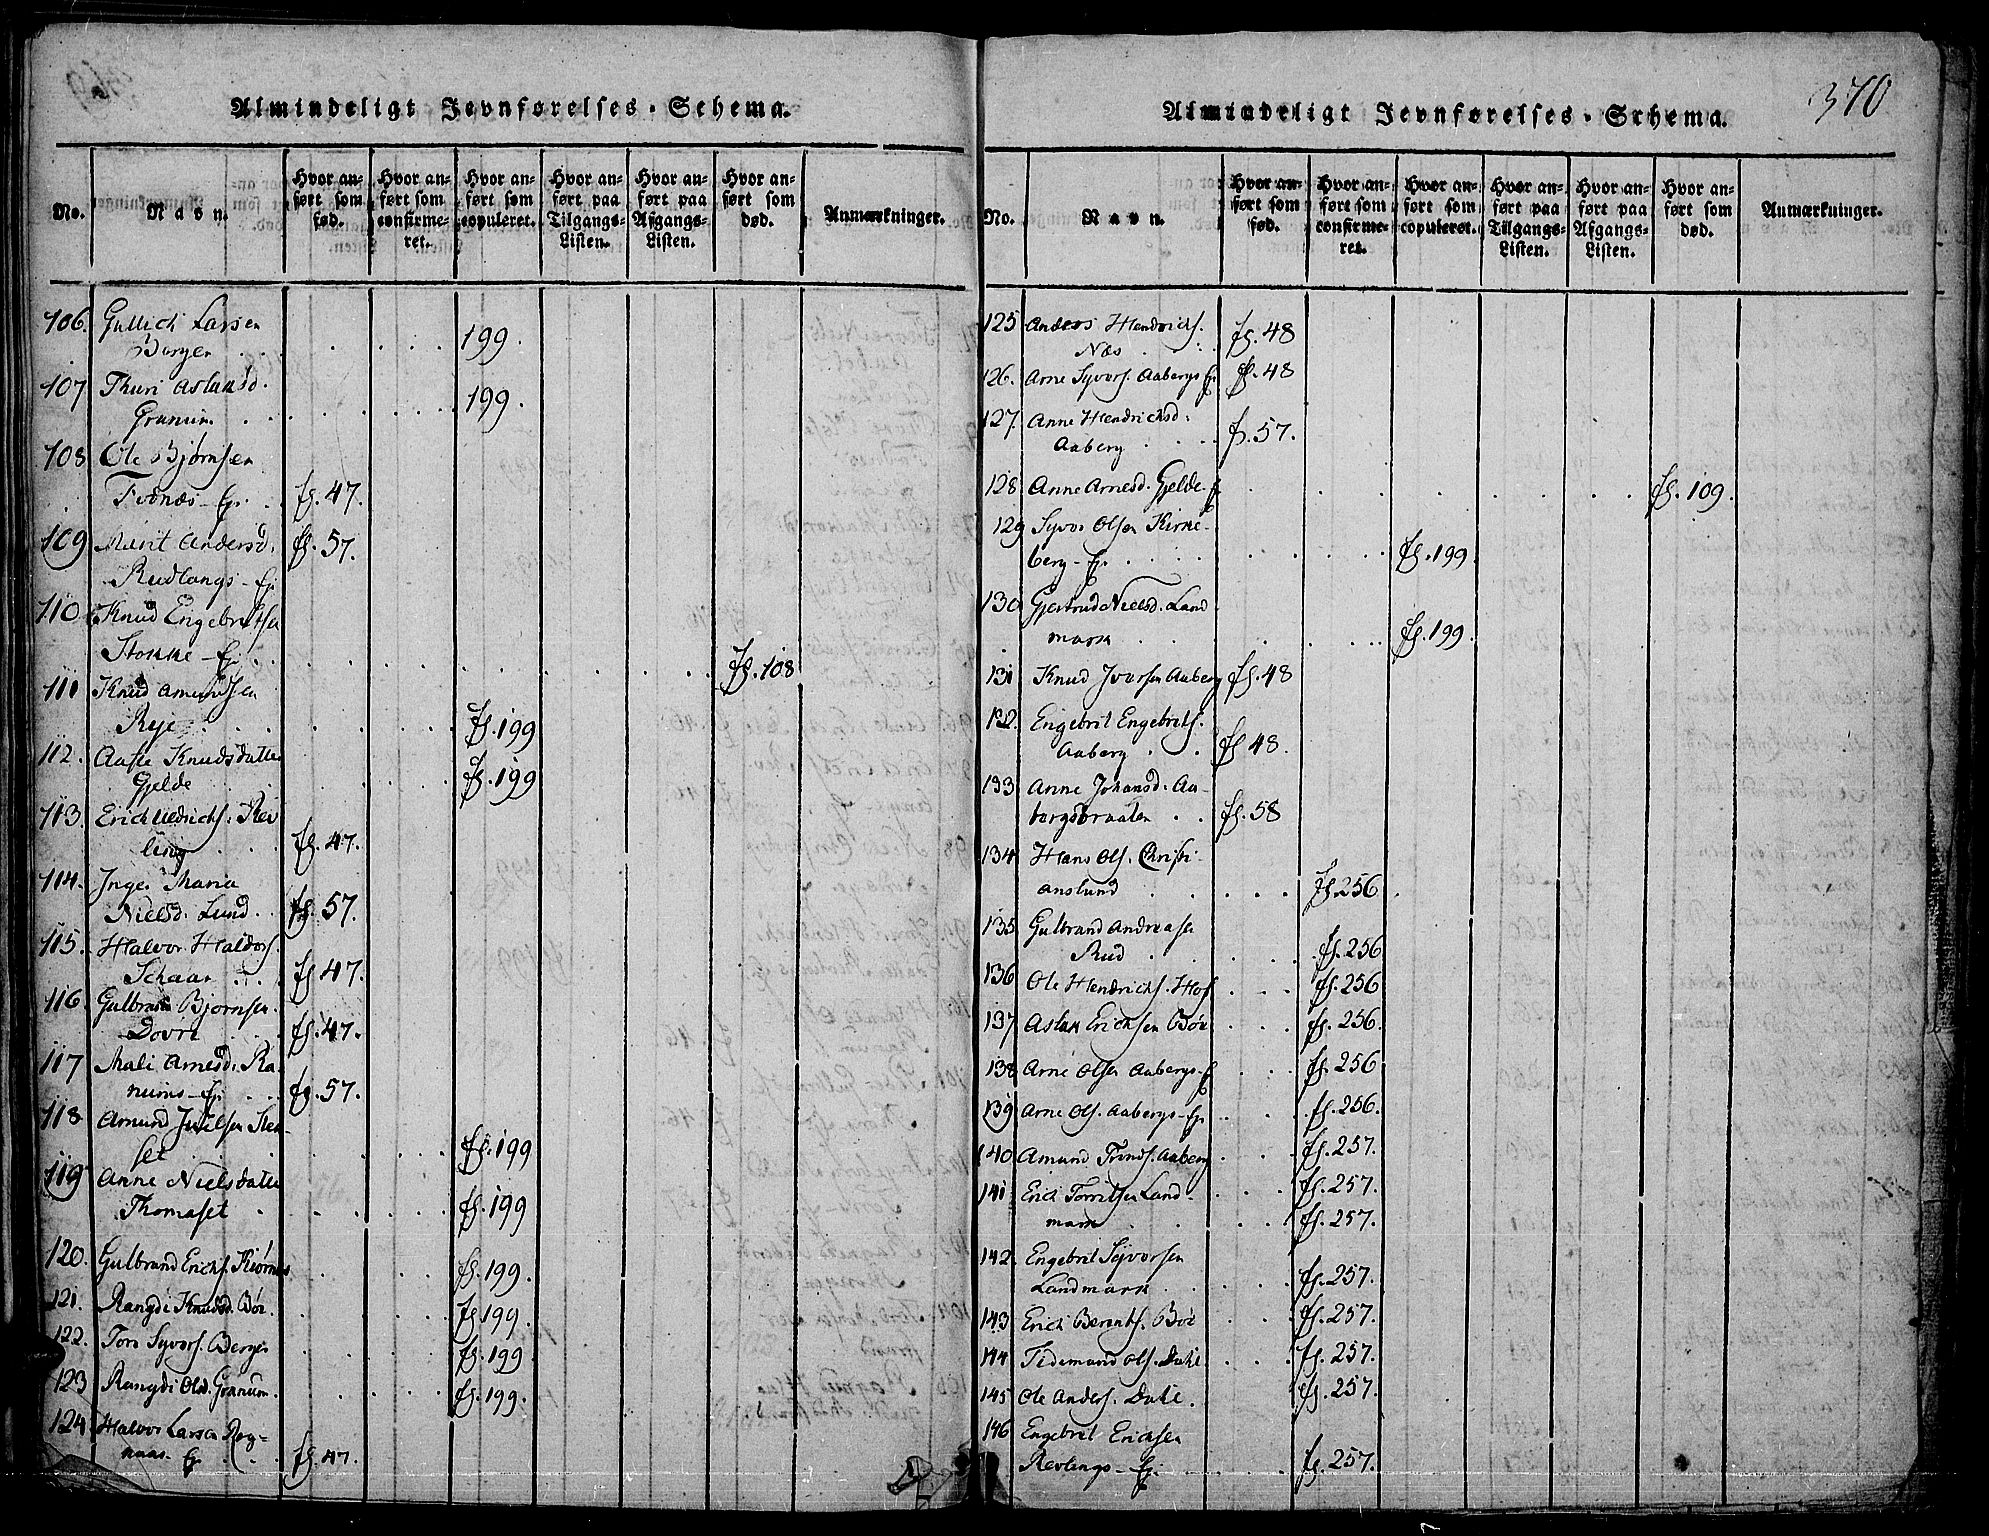 Almindeligt Jevnførelses-Schema.
No.
Navn.
Hvor anført som fød.
Hvor anført som confirmeret.
Hvor anført som copuleret.
Hvor anført paa Tilgangs-Listen.
Hvor anført paa Afgangs-Listen.
Hvor anført som død.
Anmærkninger.
106. Gullich Larsen
Berger . . . . . 199.
107 Thuri Aslaksd.
Granum. . . . . . 199.
108 Ole Bjørnsen
Tvenæs - Ej. . fg. 47.
109 Marit Andersd. fg. 57.
Rudlangs - Ej.
110 Knud Engebretsen
Stokke - Ej. . . . . . . fg. 108
111 Knud Amundsen
Reje . . . . . . fg. 199
112. Aase Knudsdatter
Gjelde . . . . fg. 199
113. Erich Uldrichs. Rev
ling . . . fg. 47.
114. Inger Maria
Nielsd. Lund . . fg. 57.
115. Halvor Haldors.
Schaar . . . fg. 47.
116. Gulbrand Bjørnsen
Dovre . . fg. 47.
117 Mali Arnesd. Ra-
nums - Ej. . . fg. 57.
118. Amund Juelsen Sten-
set . . . . . fg. 199
119 Anne Nielsdatter
Thomaset . . . . fg. 199
120. Gulbrand Erichs. Kiørnes . . . fg. 199.
121. Rangdi Knudsd. Bøe. . . . fg. 199.
122. Tore Syvers. Berger . . . fg. 199.
123 Rangdi Olsd. Granum. . . . fg. 199.
124 Halvor Larsen Røg-
næs - Ej. . . fg. 47.
370
Almindeligt Jevnførelses-Schema.
No.
Navn.
Hvor anført som fød.
Hvor anført som confirmeret.
Hvor anført som copuleret.
Hvor anført paa Tilgangs-Listen.
Hvor anført paa Afgangs-Listen.
Hvor anført som død.
Anmærkninger.
125 Anders Hendrichs.
Næs . . . fg. 48
126. Arne Syvers. Aabergs Ej. fg. 48
127. Anne Hendrichsd.
Aaberg . . . . fg. 57.
128. Anne Arnesd. Gjelde-Ej. . . . . . . fg. 109.
129 Syver Olsen Kirke-
berg - Ej. . . . . . . fg. 199
130 Gjertrud Nielsd. Land
mark . . . . . . fg. 199
131 Knud Iversen Aaberg fg. 48
132. Engebret Engebrets.
Aaberg . . . fg. 48.
133 Anne Johansd. Aa-
bergsbraaten . . fg. 58
134 Hans Ols. Christi-
anslund . . . . . fg. 256
135 Gulbrand Andreasen
Rud . . . . . fg. 256
136 Ole Hendrichs. Hof . . . fg. 256
137 Aslak Erichsen Bøe . . . fg. 256.
138 Arne Olsen Aabergs-Ej. . . fg. 256
139 Arne Ols. Aabergs-Ej. . . . fg. 256.
140 Amund Trends. Aaberg . . . fg. 257.
141 Erich Torretsen Land- . . . fg. 257.
mark . . . . fg. 257.
142. Engebret Syversen
Landmark . . . . . fg. 257.
143 Erich Berents. Bøe . . . fg. 257.
144 Tidemand Ols. Dahl . . . fg. 257.
145 Ole Anders. Dahl. fg. 257.
146 Engebret Erichsen
Revlings - Ej. . . . . fg. 257.